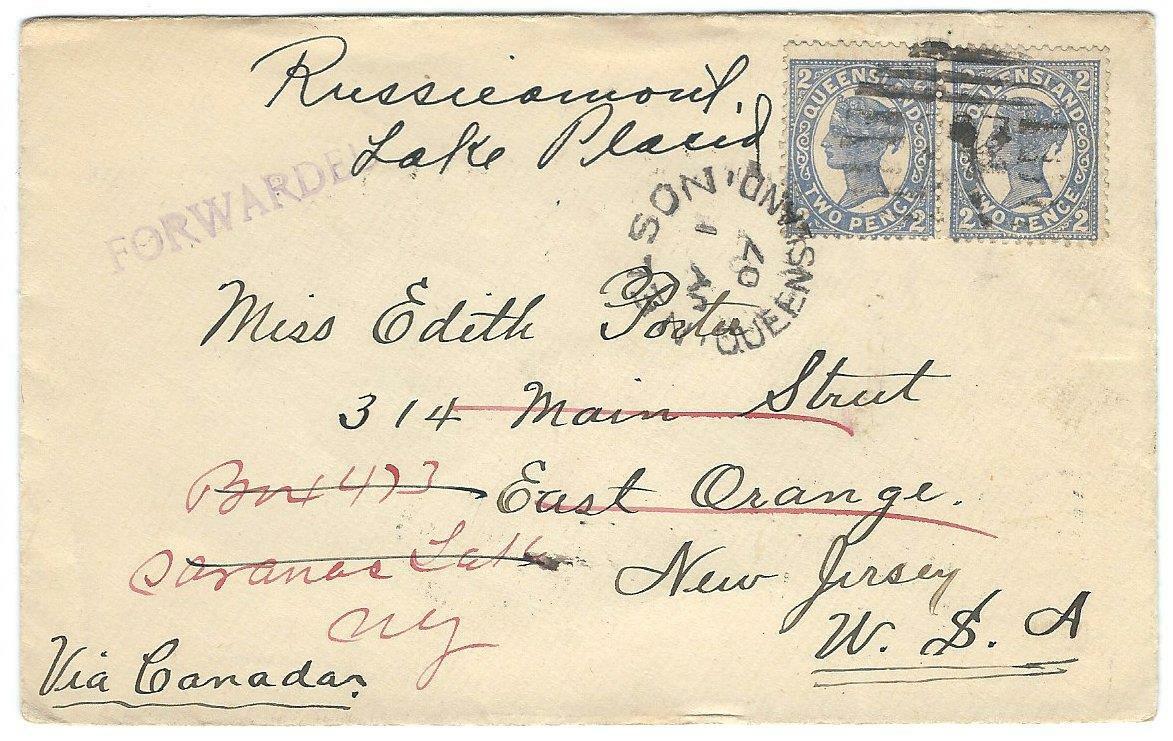 Russieamont,
Lake Placid
FORWARDED
2 QUEENSLAND 2
TWO PENCE
2 2
QUEENSLAND 2
TWO PENCE
2 2
QUEENSLAND
07
Miss Edith Porter
314 Main Street
Box 473 East Orange.
Saranac Lake
New Jersey
NY
U. S. A
Via Canada.